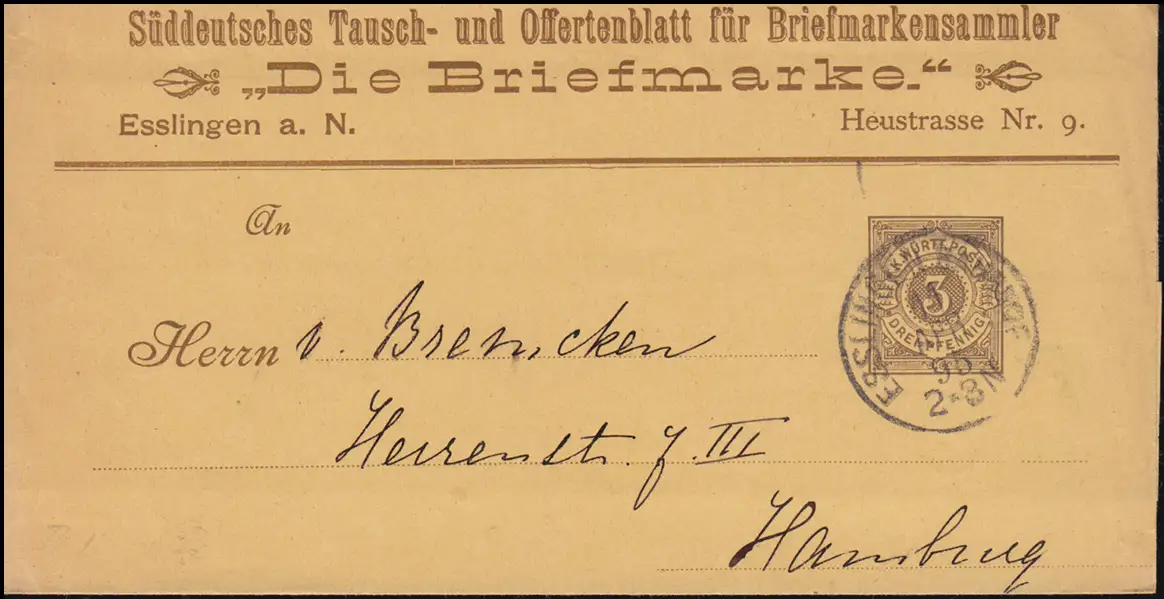 Süddeutsches Tausch- und Offertenblatt für Briefmarkensammler
„Die Briefmarke.“
Esslingen a. N. Heustrasse Nr. 9.
An
K.WÜRTT.POST
3
DREI PFENNIG
ESSLINGEN
2-3 N
Herrn v. Brencken
Herrenstr. 7 III
Hamburg